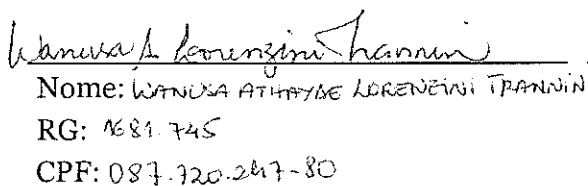 Wanusa A Lorenzini Trannin
Nome: WANUSA ATHAYDE LORENZINI TRANNIN
RG: 1681.745
CPF: 087.720.247-80